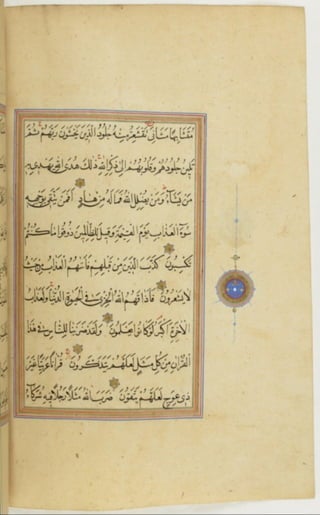 مُتَشَابِهًا مَثَانِيَ تَقْشَعِرُّ مِنْهُ جُلُودُ الَّذِينَ يَخْشَوْنَ رَبَّهُمْ ثُمَّ
تَلِينُ جُلُودُهُمْ وَقُلُوبُهُمْ إِلَى ذِكْرِ اللَّهِ ذَلِكَ هُدَى اللَّهِ يَهْدِي بِهِ
مَنْ يَشَاءُ وَمَنْ يُضْلِلِ اللَّهُ فَمَا لَهُ مِنْ هَادٍ أَفَمَنْ يَتَّقِي بِوَجْهِهِ
سُوءَ الْعَذَابِ يَوْمَ الْقِيٰمَةِ وَقِيلَ لِلظَّالِمِينَ ذُوقُوا مَا كُنْتُمْ
تَكْسِبُونَ كَذَّبَ الَّذِينَ مِنْ قَبْلِهِمْ فَأَتَاهُمُ الْعَذَابُ مِنْ حَيْثُ
لَا يَشْعُرُونَ فَأَذَاقَهُمُ اللَّهُ الْخِزْيَ فِي الْحَيٰوةِ الدُّنْيَا وَلَعَذَابُ
الْآخِرَةِ أَكْبَرُ لَوْ كَانُوا يَعْلَمُونَ وَلَقَدْ ضَرَبْنَا لِلنَّاسِ فِي هَذَا
الْقُرْآنِ مِنْ كُلِّ مَثَلٍ لَعَلَّهُمْ يَتَذَكَّرُونَ قُرْآنًا عَرَبِيًّا غَيْرَ
ذِي عِوَجٍ لَعَلَّهُمْ يَتَّقُونَ ضَرَبَ اللَّهُ مَثَلًا رَجُلًا فِيهِ شُرَكَاءُ